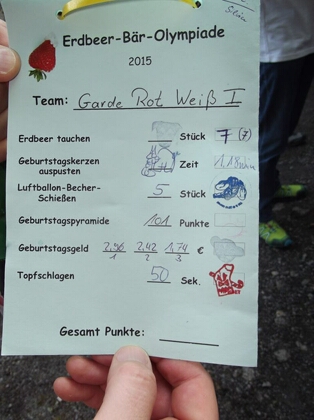 Erdbeer-Bär-Olympiade
2015
Team: Garde Rot Weiß I
Erdbeer tauchen Stück 7 (7)
Geburtstagskerzen auspusten Zeit
Luftballon-Becher-Schießen 5 Stück
Geburtstagspyramide 101 Punkte
Geburtstagsgeld 2,90 2,42 1,74 €
1 2 3
Topfschlagen 50 Sek.
Gesamt Punkte: